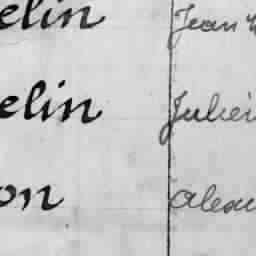 elin Jean
elin Julien
on